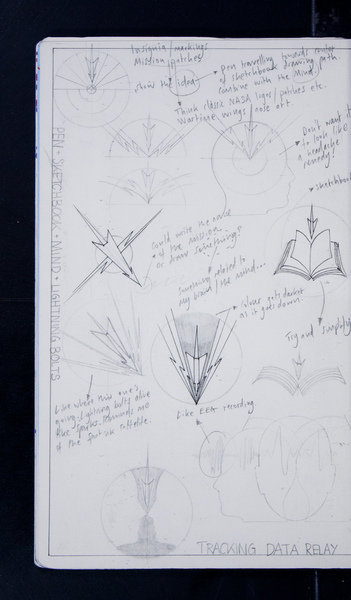 Insignia/markings
Mission patches
Show the idea
Pen travelling towards centre
of sketchbook drawing path.
Combine with the Mind.
Think classic NASA logos/patches etc.
Wartime wings/nose art.
Don't want it
to look like
a headache
remedy!
sketchbook
Could write the name
of the mission...
or draw something?
Something related to
my brand/the mind...
Colour gets darker
as it goes down.
Try and simplify
Like where this one's
going. Lightning bolts alive
like sparks. Reminds me
of the Sputnik satellite.
Like EEG recording.
PEN + SKETCHBOOK + MIND + LIGHTNING BOLTS
TRACKING DATA RELAY